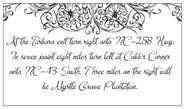 At the Tarboro exit turn right onto NC-258 Hwy.
In seven point eight miles turn left at Cobb's Corner
onto NC-43 South. Three miles on the right will
be Myrtle Grove Plantation.